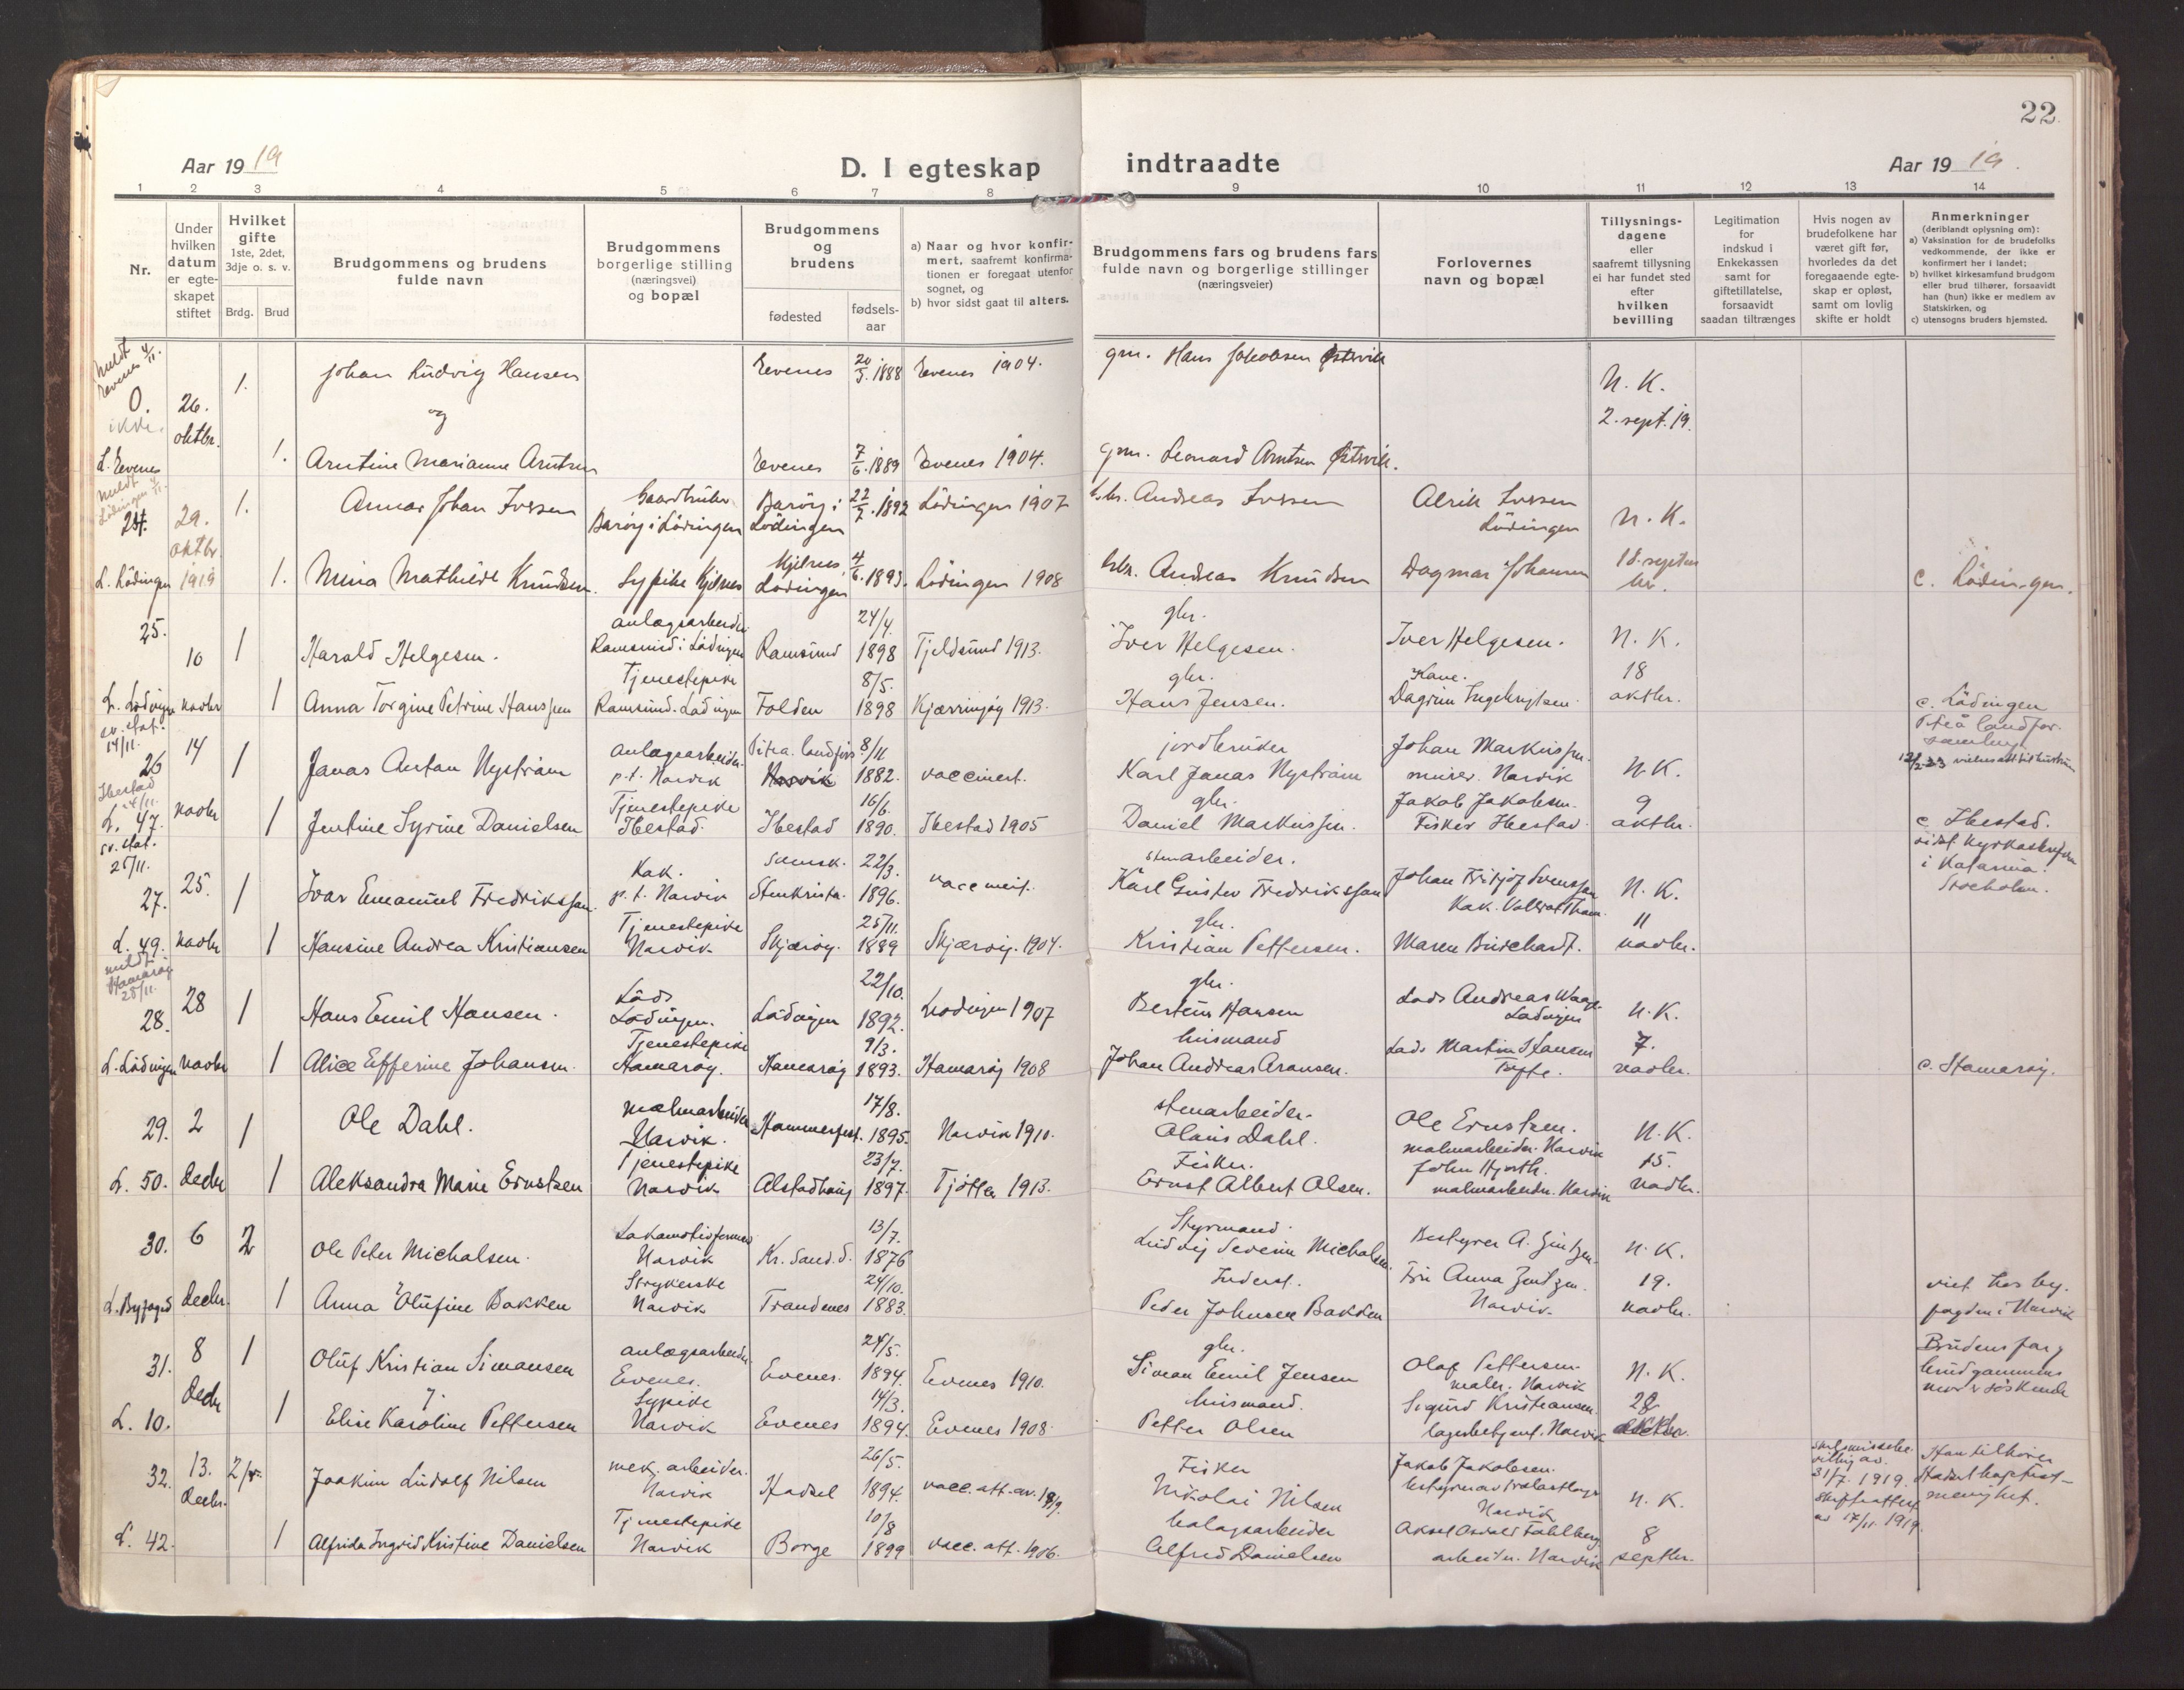 22.
Aar 1919
D. I egteskap
indtraadte
Aar 1919.
1 2 3 4 5 6 7 8 9 10 11 12 13 14
Nr.
Under hvilken datum er egteskapet stiftet
Hvilket gifte
1ste, 2det, 3dje o. s. v.
Brdg. Brud
Brudgommens og brudens fulde navn
Brudgommens borgerlige stilling (næringsvei) og bopæl
Brudgommens og brudens
fødested
fødsels-aar
a) Naar og hvor konfirmert, saafremt konfirmationen er foregaat utenfor sognet, og
b) hvor sidst gaat til alters.
Brudgommens fars og brudens fars fulde navn og borgerlige stillinger (næringsveier)
Forlovernes navn og bopæl
Tillysningsdagene eller saafremt tillysning ei har fundet sted efter hvilken bevilling
Legitimation for indskud i Enkekassen samt for giftetillatelse, forsaavidt saadan tiltrænges
Hvis nogen av brudefolkene har været gift før, hvorledes da det foregaaende egteskap er opløst, samt om lovlig skifte er holdt
Anmerkninger
(deriblandt oplysning om):
a) Vaksination for de brudefolks vedkommende, der ikke er konfirmert her i landet;
b) hvilket kirkesamfund brudgom eller brud tilhører, forsaavidt han (hun) ikke er medlem av Statskirken, og
c) utensogns bruders hjemsted.
meldt Evenes 4/11.
0. ikke. 26. oktbr. 1. Johan Ludvig Hansen Evenes 20/3. 1888 Evenes 1904. gm. Hans Jakobsen Østervik N. K. 2. sept. 19.
og
L. Evenes 1. Arntine Marianne Arntsen Evenes 7/6. 1889 Evenes 1904. gm. Leonard Arntsen Østervik.
meldt Lödingen 4/11.
24. 29. oktbr 1919 1. Annar Johan Ivssen Gaardbruker Barøy i Lödingen Barøy i Lödingen 22/7. 1892 Lödingen 1907 Andreas Ivssen Alrik Ivssen Lödingen N. K.
L. Lödingen 1. Mina Mathilde Knudsen. Sypike Kjelnes Kjelnes, Lödingen 4/6. 1893. Lödingen 1908 Andreas Knudsen Dagmar Johansen 18. septembr. c. Lödingen.
25. 10 1 Harald Helgesen. anlægsarbeider Ramsund i Lödingen Ramsund 24/4. 1898 Tjeldsund 1913. gbr. Iver Helgesen. Iver Helgesen. N. K.
L. Lödingen novbr 1 Anna Torgine Petrine Hanssen Tjenestepike Ramsund. Lödingen Folden 8/5. 1898 Kjærringøy 1913. gbr. Hans Jensen. Kone. Dagrun Ingebrigtsen. 18 oktbr. c. Lödingen
sv. stat. 14/11.
26 14 1 Jonas Anton Nyström anlægsarbeider. p.t. Narvik Pitea. landsfors. 8/11 1882. vaccinert. jordbruker Karl Jonas Nyström Johan Markussen murer. Narvik N. K. Piteå landsforsamling
Ibestad 14/11.
L. 47. novbr 1 Jentine Syrine Danielsen Tjenestepike Ibestad. Ibestad 16/6. 1890. Ibestad 1905 gbr. Daniel Markussen. Jakob Jakobsen. Fisker Ibestad 9 oktbr. c Ibestad.
sv. stat. 25/11.
27. 25. 1 Ivar Emanuel Fredriksson. Kok. p.t. Narvik Svensk. Stenkvista. 22/3. 1896. stenarbeider. Karl Gustav Fredriksson Johan Fritjof Svensson Kok. N. K. i Katarina. Stockholm.
L. 49. novbr 1 Hansine Andrea Kristiansen Tjenestepike Narvik Skjærøy. 25/11. 1889 Skjærøy. 1904. gbr. Kristian Pettersen. Maren Burchardt. 11 novbr.
meldt Hamarøy 28/11.
28. 28 1 Hans Emil Hansen. Lods Lödingen. Lödingen 22/10. 1892. Lodingen 1907 gbr. Berteus Hansen Lods Andreas Waage Lödingen N. K.
L. Lödingen novbr 1 Alice Efferine Johansen. Tjenestepike Hamarøy. Hamarøy 9/3. 1893. Hamarøy 1908 husmand Johan Andreas Aronsen. Lods Martin Hansen Tofte. 7. novbr. c. Hamarøy.
29. 2 1 Ole Dahl. malmarbeider Narvik. Hammerfest. 17/8. 1895. Narvik 1910. stenarbeider. Olaus Dahl. Ole Ernstsen. malmarbeider. Narvik N. K.
L. 50. decbr 1 Aleksandra Marie Ernstsen Tjenestepike Narvik Alstadhaug 23/7. 1897. Tjøtta 1913. Fisker. Ernst Albert Olsen. John Hjorth. malmarbeider. Narvik 15. novbr.
30. 6 2 Ole Peter Michalsen. Lokomotivformand Narvik Kr. Sand. S. 13/7. 1876 Styrmand. Ludvig Severin Michalsen. Bestyrer A. Jentzen. N. K.
L. Byfoged decbr. 1 Anna Olufine Bakken Strykerske Narvik Trondenes 24/10. 1883. Inderst. Peder Johnsen Bakken Fru Anna Jentzen. Narvik. 19. novbr. viet hos byfogden i Narvik
31. 8 1 Oluf Kristian Simonsen anlægsarbeider. Evenes. Evenes. 24/5. 1894. Evenes 1910. gbr. Simon Emil Jensen Olaf Pettersen. maler. Narvik N. K. Brudens far og brudgommens mor er søskende
L. 10. decbr 1 Elise Karoline Pettersen Sypike Narvik Evenes 14/3. 1894. Evenes 1908. husmand. Petter Olsen Sigurd Kristiansen. lagerbetjent. Narvik 28
32. 13. decbr. 2 Joakim Ludolf Nilsen mek. arbeider. Narvik Hadsel 26/5. 1894. vacc. att. av. Fisker Nikolai Nilsen Jakob Jakobsen. Narvik N. K. skilsmissebevilling av. 31/7. 1919. Skifteattest av 17/11. 1919. Han tilhører Hadsel baptistmenighet.
L. 42. 1 Alfrida Ingrid Kristine Danielsen Tjenestepike Narvik Borge 10/8 1899 vacc. att. 1906. Alfred Danielsen Aksel Osvald Fahlberg. arbeider. Narvik 8 septbr.